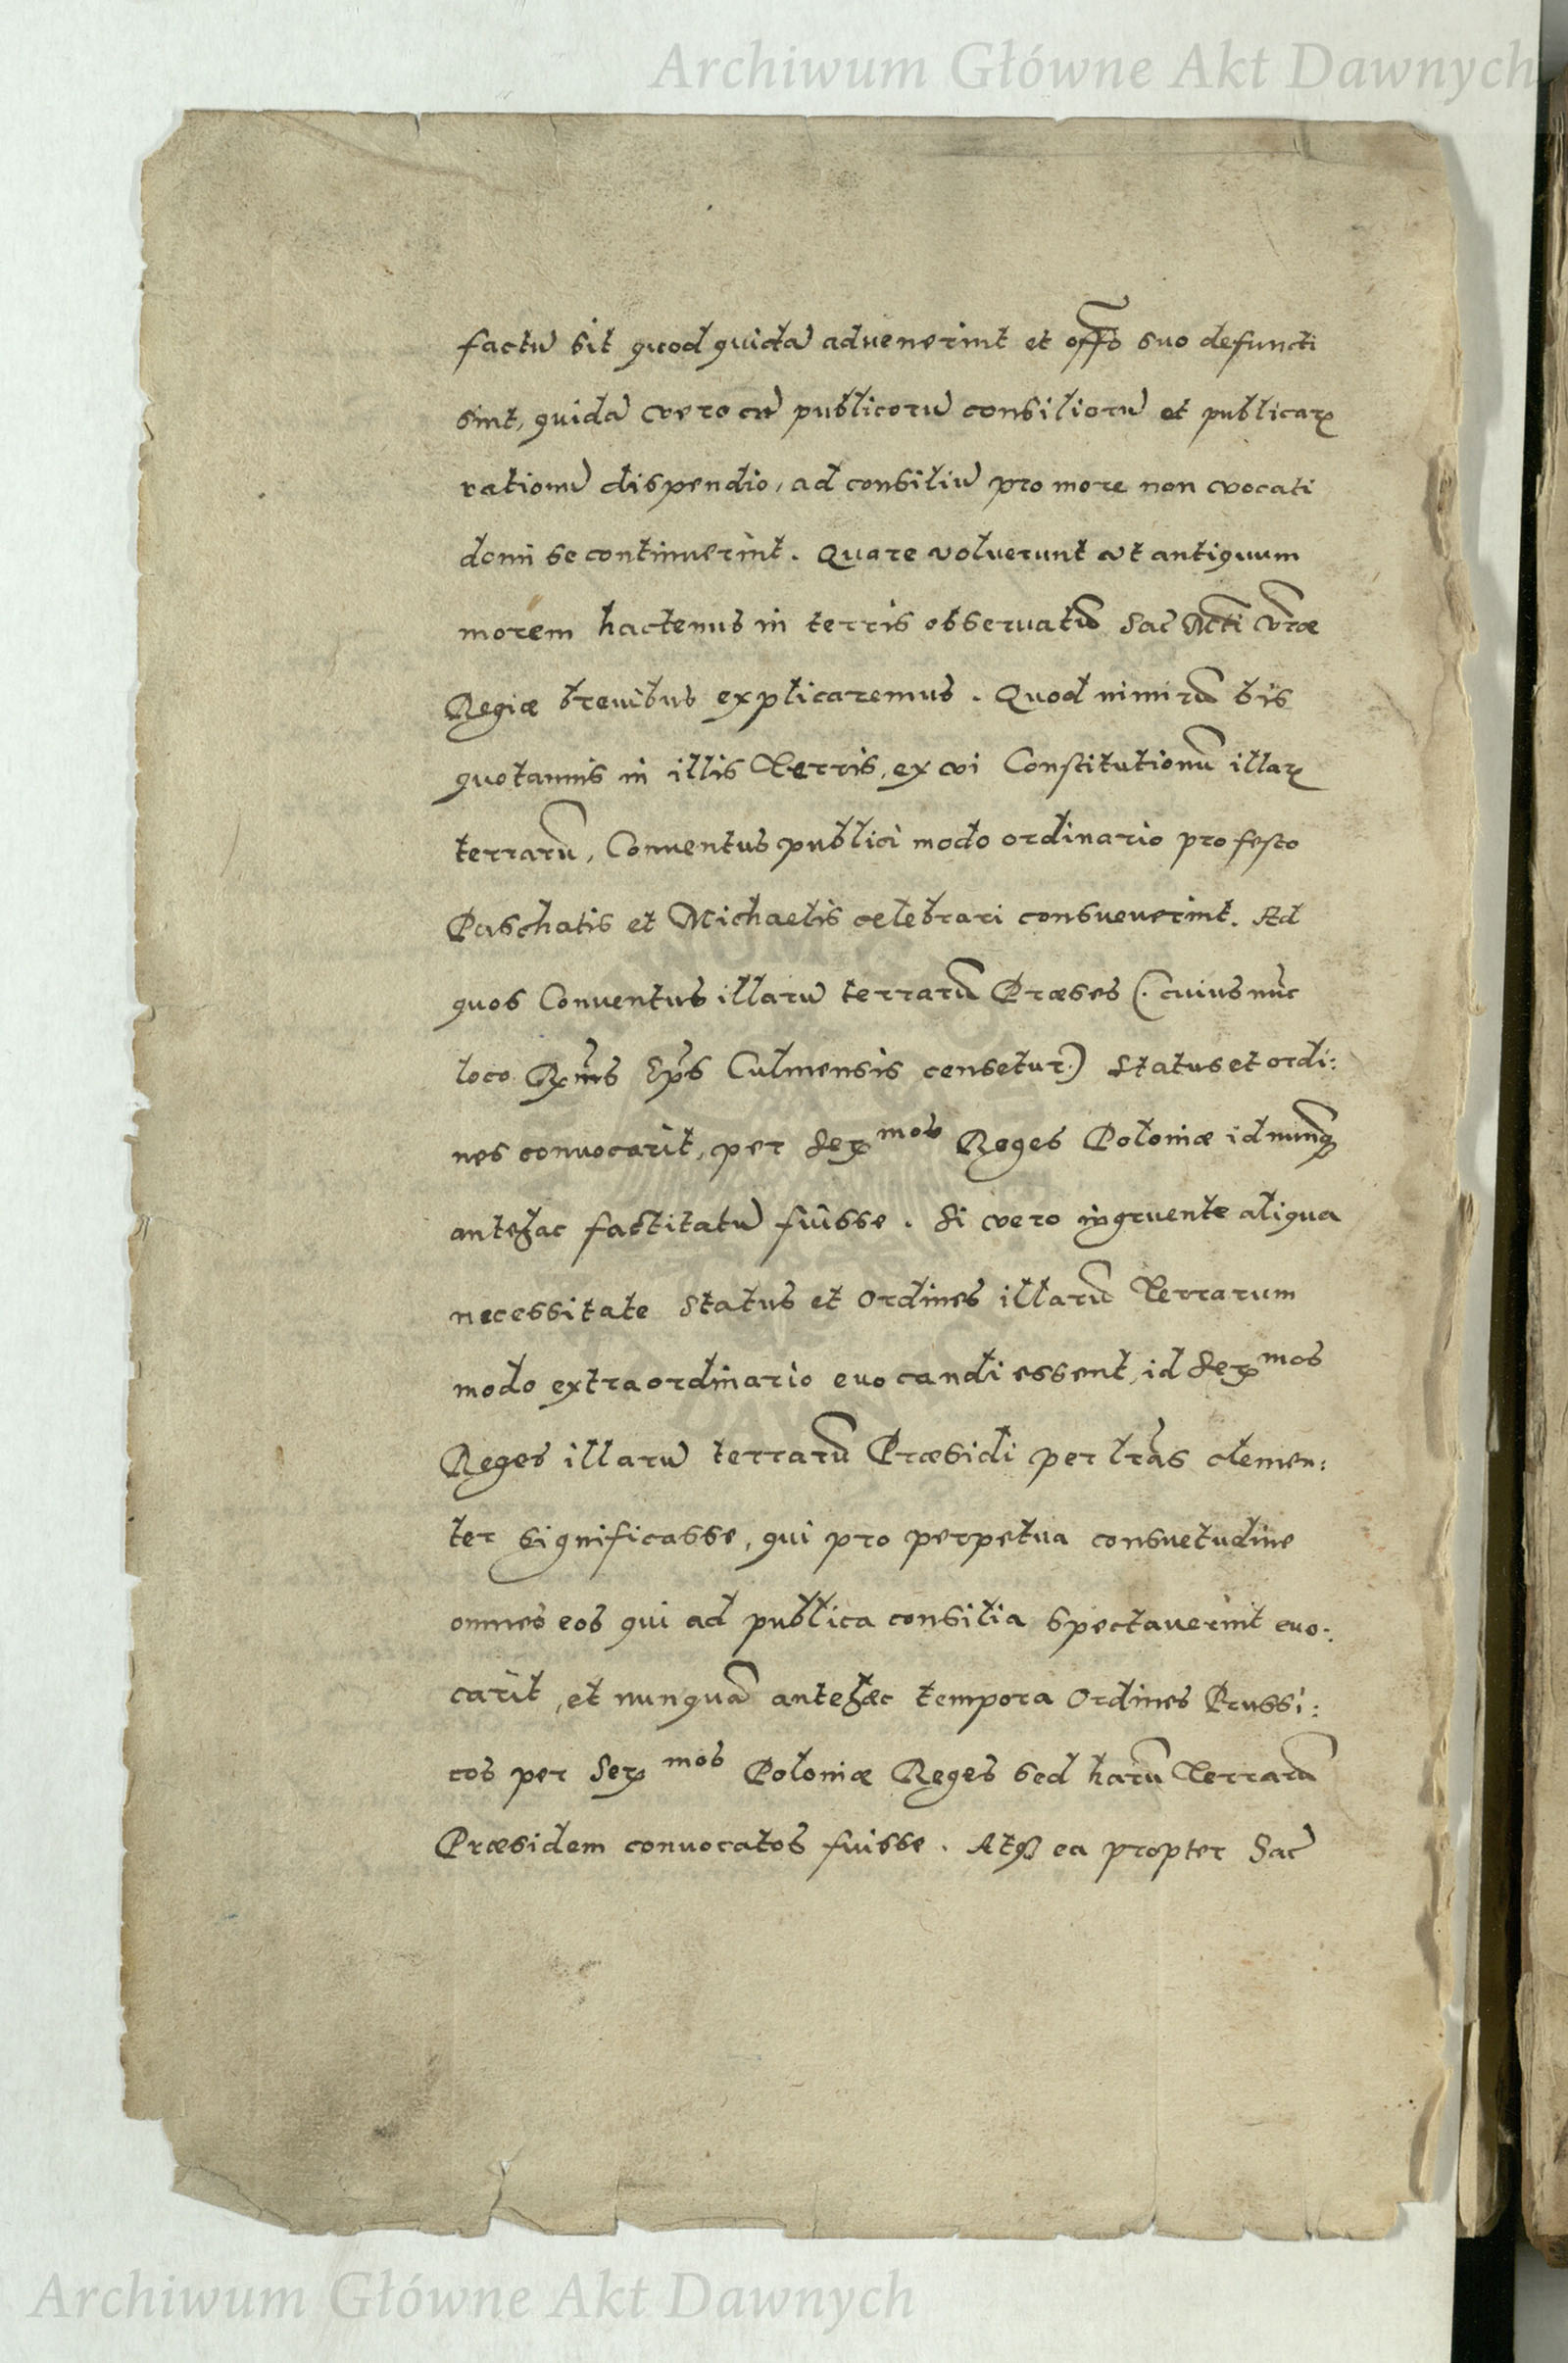 Archiwum Główne Akt Dawnych
factũ sit quod quidã advenerint et offõ suo defuncti
sint, quidã vero cũ publicorũ consiliorũ et publicarꝝ
rationũ dispendio, ad consiliũ pro more non vocati
domi se continuerint. Quare voluerunt vt antiquum
morem hactenus in terris observatũ Sac̃ Mtti Vræ
Regiæ brevibus explicaremus. Quod nimirũ bis
quotannis in illis Terris, ex vi Constitutionũ illarꝝ
terrarũ, Conventus publici modo ordinario pro festo
Paschatis et Michaelis celebrari consueverint. Ad
quos Conventus illarũ terrarũ Præses (. cuius nũc
loco Rx̃ms Ep̃s Culmensis censetur.) Status et ordi:
nes convocarit, per Serꝝmos Reges Poloniæ id nunq̃
antehac factitatũ fuisse. Si vero ingruente aliqua
necessitate Status et Ordines illarũ Terrarum
modo extraordinario evocandi essent, id Serꝝmos
Reges illarũ terrarũ Præsidi per lr̃as clemen:
ter significasse, qui pro perpetua consuetudine
omnes eos qui ad publica consilia spectaverint evo:
carit, et nunquã antehæc tempora Ordines Prussi:
cos per Serꝝmos Poloniæ Reges sed harũ Terrarũ
Præsidem convocatos fuisse. Atqꝫ ea propter Sac̃
Archiwum Główne Akt Dawnych